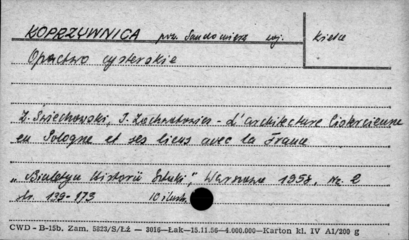 KOPRZYWNICA pow. Sandomierz woj. Kielce
Opactwo cysterskie
Z. Świechowski, J. Zachwatowicz - L'architecture Cistercienne
en Pologne et ses liens avec la France
„Biuletyn Historii Sztuki", Warszawa 1958, nr 2
str. 139-173 10 ilustr.
CWD - B-15b. Zam. 5823/S/ŁŻ — 3016—Łak—15.11.56—4.000.000—Karton kl. IV A1/200 g